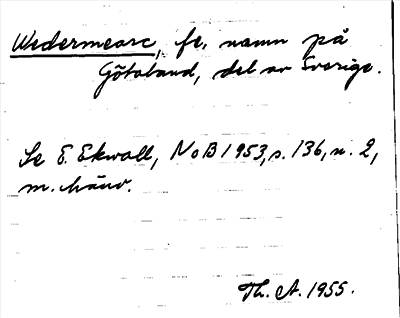 Wedermearc, fe. namn på
Götaland, del av Sverige.
Se E. Ekwall, NoB 1953, s. 136, n. 2,
m. hänv.
Th. A. 1955.